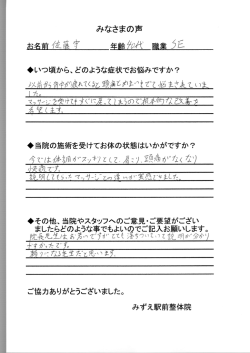 みなさまの声
お名前 佐藤 守 年齢 40代 職業 SE
◆いつ頃から、どのような症状でお悩みですか？
以前から背中が疲れてくると頭痛とめまいまででて悩まされていました。
マッサージを受けてもすぐに戻ってしまうので根本的な改善を
希望してます。
◆当院の施術を受けてお体の状態はいかがですか？
今では体調がスッキリとして、肩こり、頭痛がなくなり
快適です。
説明してもらったマッサージとの違いが実感できました。
◆その他、当院やスタッフへのご意見・ご要望がござい
ましたらどのような事でもよいのでご記入お願いします。
院長先生はお若いですがとても落ちついていて説明が分かり
やすかったです。
頼りになる先生だと思います。
ご協力ありがとうございました。
みずえ駅前整体院